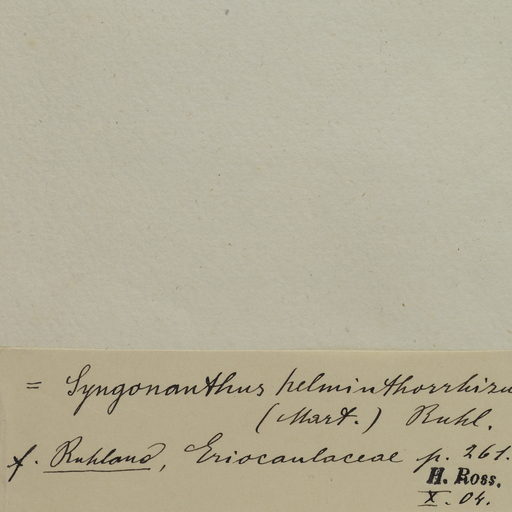 = Syngonanthus helminthorrhizu
(Mart.) Ruhl.
f. Ruhland, Eriocaulaceae p. 261.
H. Ross.
X. 04.